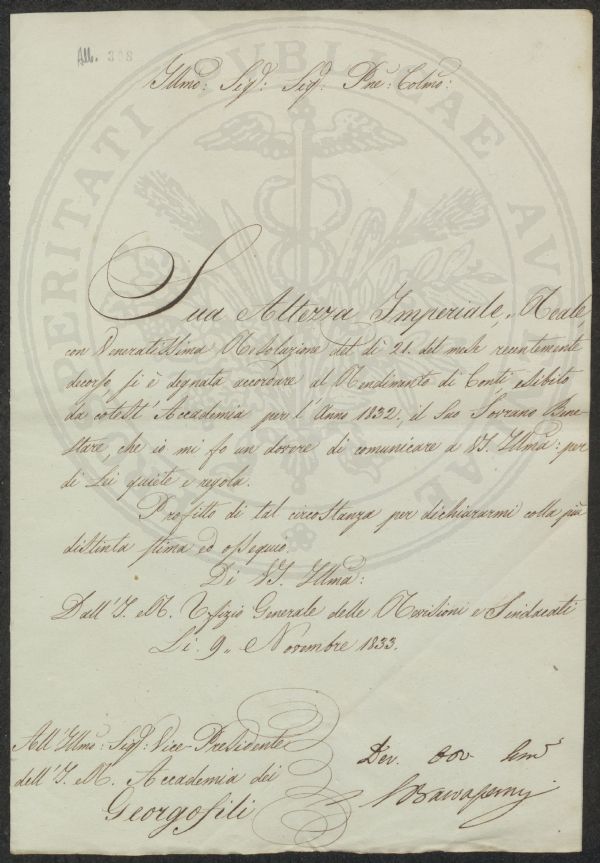 All. 398
Illmo: Sigr: Sigr: Pne: Colmo:
Sua Altezza Imperiale, e Reale
con Veneratissima Risoluzione del dì 21. del mese recentemente
decorso si è degnata accordare al Rendimento di Conti esibito
da cotest' Accademia per l'Anno 1832, il Suo Sovrano Bene-
stare, che io mi fo un dovere di comunicare a VS. Illma: per
di Lei quiete e regola.
Profitto di tal circostanza per dichiararmi colla più
distinta stima ed ossequio.
Di VS. Illma:
Dall' I. e R. Ufizio Generale delle Revisioni e Sindacati
Li 9,, Novembre 1833.
All' Illmo: Sigr: Vice-Presidente
dell' I. e R. Accademia dei
Georgofili
Dev. Obb
PROSPERITATI PUBLICAE AUGENDAE